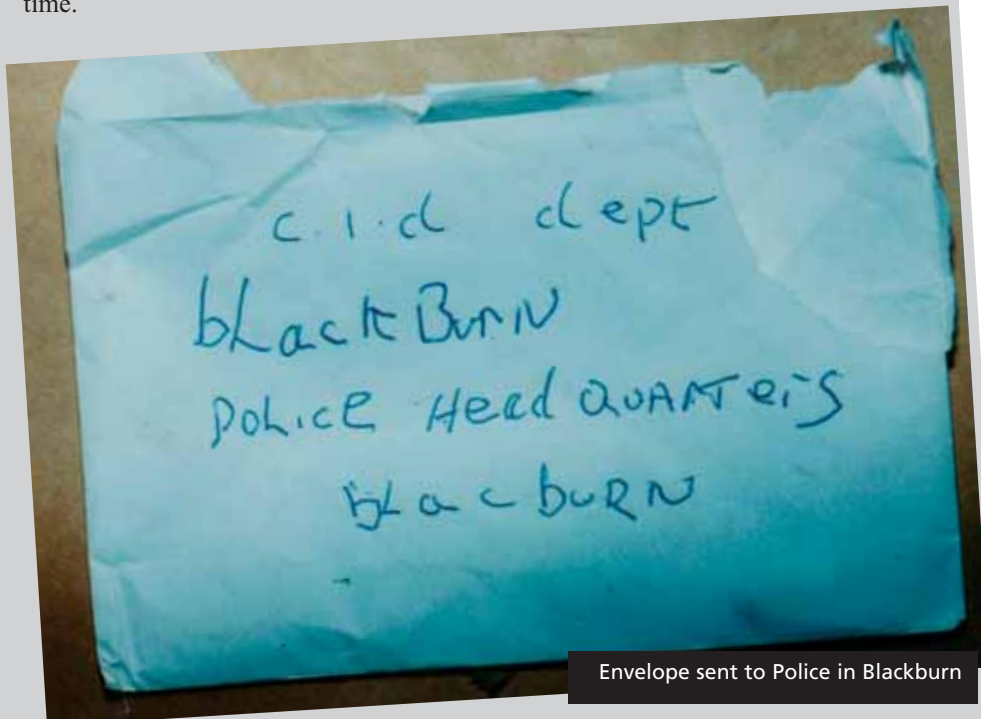 time.
c.i.d dept
bLackBurN
PoLicE HeadQuARTers
bLacbuRN
Envelope sent to Police in Blackburn